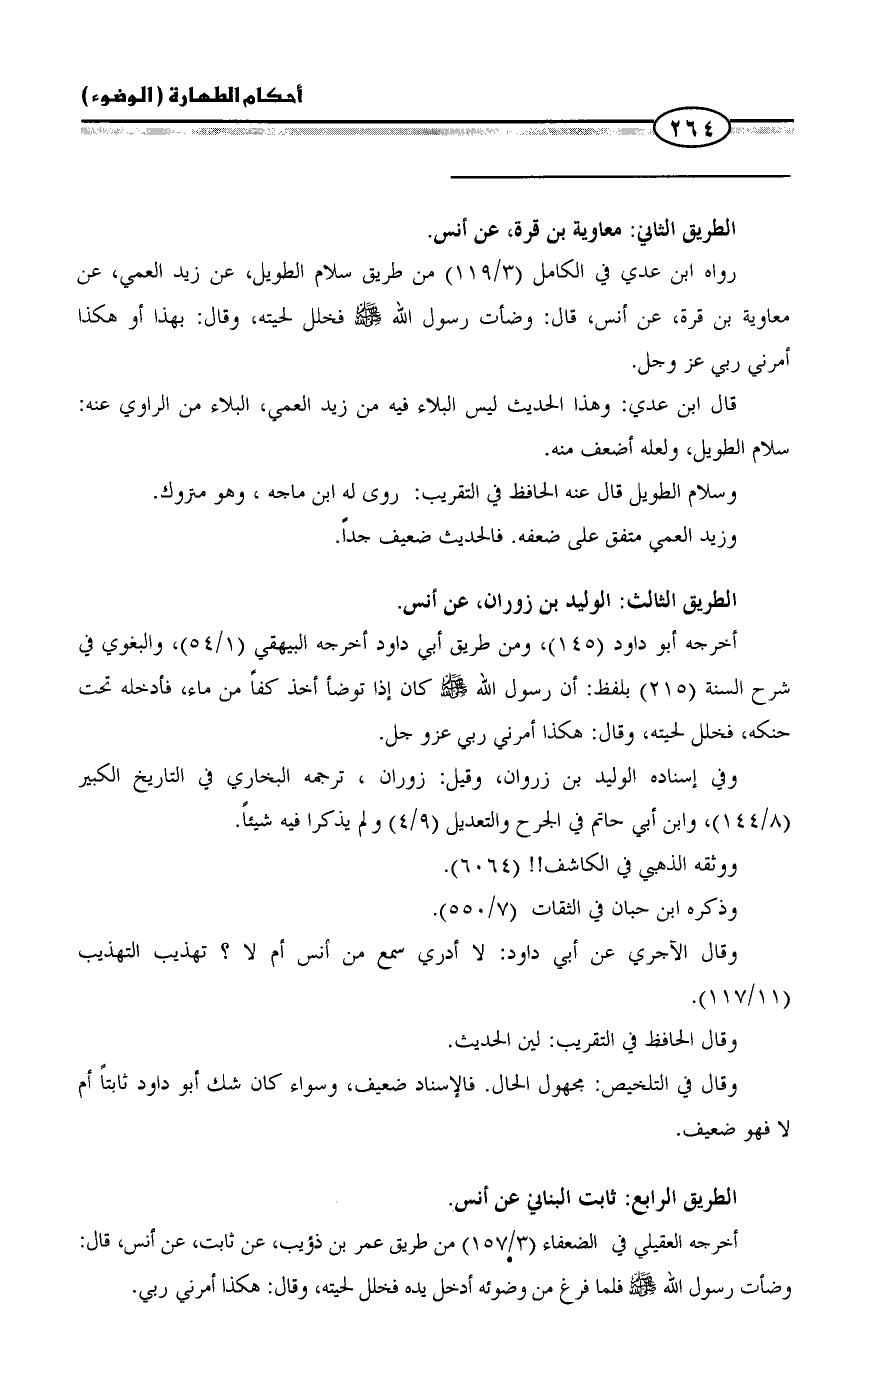 أحكام الطهارة (الوضوء)
٢٦٤
الطريق الثاني: معاوية بن قرة، عن أنس.
رواه ابن عدي في الكامل (١١٩/٣) من طريق سلام الطويل، عن زيد العمي، عن
معاوية بن قرة، عن أنس، قال: وضأت رسول الله ﷺ فخلل لحيته، وقال: بهذا أو هكذا
أمرني ربي عز وجل.
قال ابن عدي: وهذا الحديث ليس البلاء فيه من زيد العمي، البلاء من الراوي عنه:
سلام الطويل، ولعله أضعف منه.
وسلام الطويل قال عنه الحافظ في التقريب: روى له ابن ماجه ، وهو متروك.
وزيد العمي متفق على ضعفه. فالحديث ضعيف جداً.
الطريق الثالث: الوليد بن زوران، عن أنس.
أخرجه أبو داود (١٤٥)، ومن طريق أبي داود أخرجه البيهقي (٥٤/١)، والبغوي في
شرح السنة (٢١٥) بلفظ: أن رسول الله ﷺ كان إذا توضأ أخذ كفاً من ماء، فأدخله تحت
حنكه، فخلل لحيته، وقال: هكذا أمرني ربي عزو جل.
وفي إسناده الوليد بن زروان، وقيل: زوران ، ترجمه البخاري في التاريخ الكبير
(١٤٤/٨)، وابن أبي حاتم في الجرح والتعديل (٤/٩) و لم يذكرا فيه شيئاً.
ووثقه الذهبي في الكاشف!! (٦٠٦٤).
وذكره ابن حبان في الثقات (٥٥٠/٧).
وقال الآجري عن أبي داود: لا أدري سمع من أنس أم لا ؟ تهذيب التهذيب
(١١٧/١١).
وقال الحافظ في التقريب: لين الحديث.
وقال في التلخيص: مجهول الحال. فالإسناد ضعيف، وسواء كان شك أبو داود ثابتاً أم
لا فهو ضعيف.
الطريق الرابع: ثابت البناني عن أنس.
أخرجه العقيلي في الضعفاء (١٥٧/٣) من طريق عمر بن ذؤيب، عن ثابت، عن أنس، قال:
وضأت رسول الله ﷺ فلما فرغ من وضوئه أدخل يده فخلل لحيته، وقال: هكذا أمرني ربي.